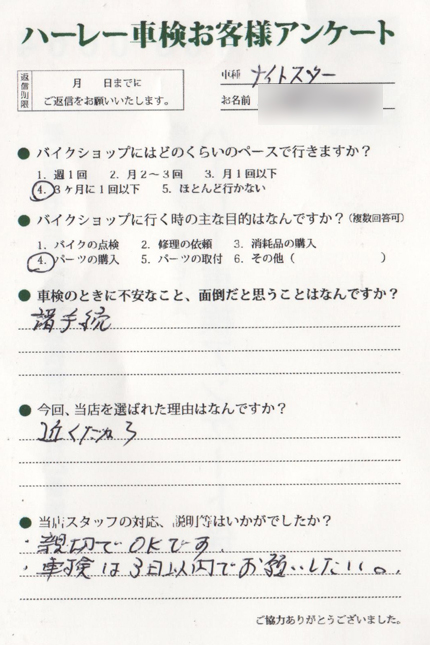 ハーレー車検お客様アンケート
返信期限
月　　日までに
ご返信をお願いいたします。
車種 ナイトスター
お名前
● バイクショップにはどのくらいのペースで行きますか？
1. 週1回　2. 月2～3回　3. 月1回以下
4. 3ヶ月に1回以下　5. ほとんど行かない
● バイクショップに行く時の主な目的はなんですか？（複数回答可）
1. バイクの点検　2. 修理の依頼　3. 消耗品の購入
4. パーツの購入　5. パーツの取付　6. その他（　　　　　　）
● 車検のときに不安なこと、面倒だと思うことはなんですか？
諸手続
● 今回、当店を選ばれた理由はなんですか？
近くだから
● 当店スタッフの対応、説明等はいかがでしたか？
・親切でOKです.
・車検は3日以内でお願いしたい。.
ご協力ありがとうございました。